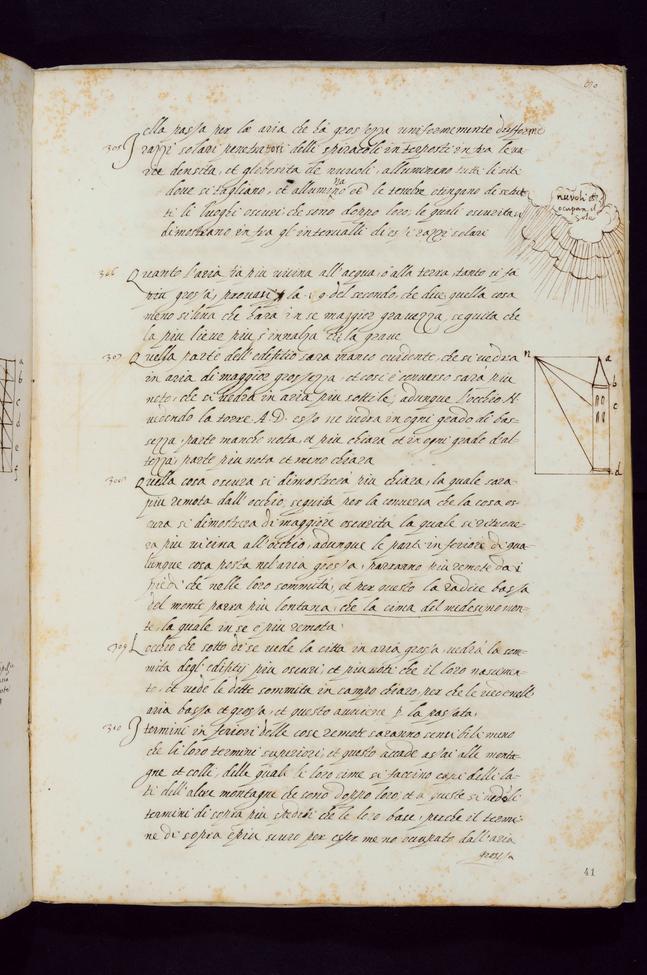 ella passa per la aria che hà grossezza uniformemente difforme
305 I razzi solari penetratori delli spiracoli interposti infra le va-
rie densita, et globosita de nuvoli, alluminano tutti li siti
dove si tagliano, et allumina
no et le tenebre
ti li luoghi oscuri che sono doppo loro, le quali oscurita si
dimostrano infra gl'intervalli di essi razzi solari
nuvoli che
ocupan il
sole
306 Quanto l'aria fia piu vicina all'acqua, o alla terra, tanto si fa
piu grossa, provasi la 19 del secondo, che dice, quella cosa
meno si leva che harà in se maggior gravezza, seguita che
la piu lieve piu s'innalza che la grave
307 Quella parte dell'edifitio sara manco evidente, che si vedra
in aria di maggior grossezza, et cosi è converso sarà piu
nota, che si vedrà in aria piu sottile, adunque l'occhio N
vedendo la torre A.D. esso ne vedra in ogni grado di bas-
sezza, parte manche nota, et piu chiara et in ogni grado d'al-
tezza, parte piu nota et meno chiara
n a
b
c
d
308 Quella cosa oscura si dimostrerà piu chiara, la quale sara
piu remota dall'occhio, seguita per la conversa che la cosa os-
cura si dimostrera di maggiore oscurita la quale si ritrove-
ra piu vicina all'occhio, adunque le parte inferiore di qua-
lunque cosa posta nel'aria grossa, parranno piu remote da i
piedi che nelle loro sommità, et per questo la radice bassa
del monte parra piu lontana, che la cima del medesimo mon-
te, la quale in se è piu remota
309 L'occhio che sotto di se vede la citta in aria grossa, vedrà la som-
mita degl'edifitii piu oscuri, et piu noti che il loro nascimen-
to, et vede le dette sommita in campo chiaro, per che le vede nell'
aria bassa et grossa, et questo avviene p la passata
310 I termini inferiori delle cose remote saranno sensibili meno
che li loro termini superiori, et questo accade assai alle monta-
gne et colli, delle quali le loro cime si faccino campi delli la-
ti dell'altre montagne che sono doppo loro, et a queste si vede li
termini di sopra piu spediti che le loro base, perche il termi-
ne di sopra è piu scuro per esser meno occupato dall'aria
grossa
41
a
b
c
d
e
f